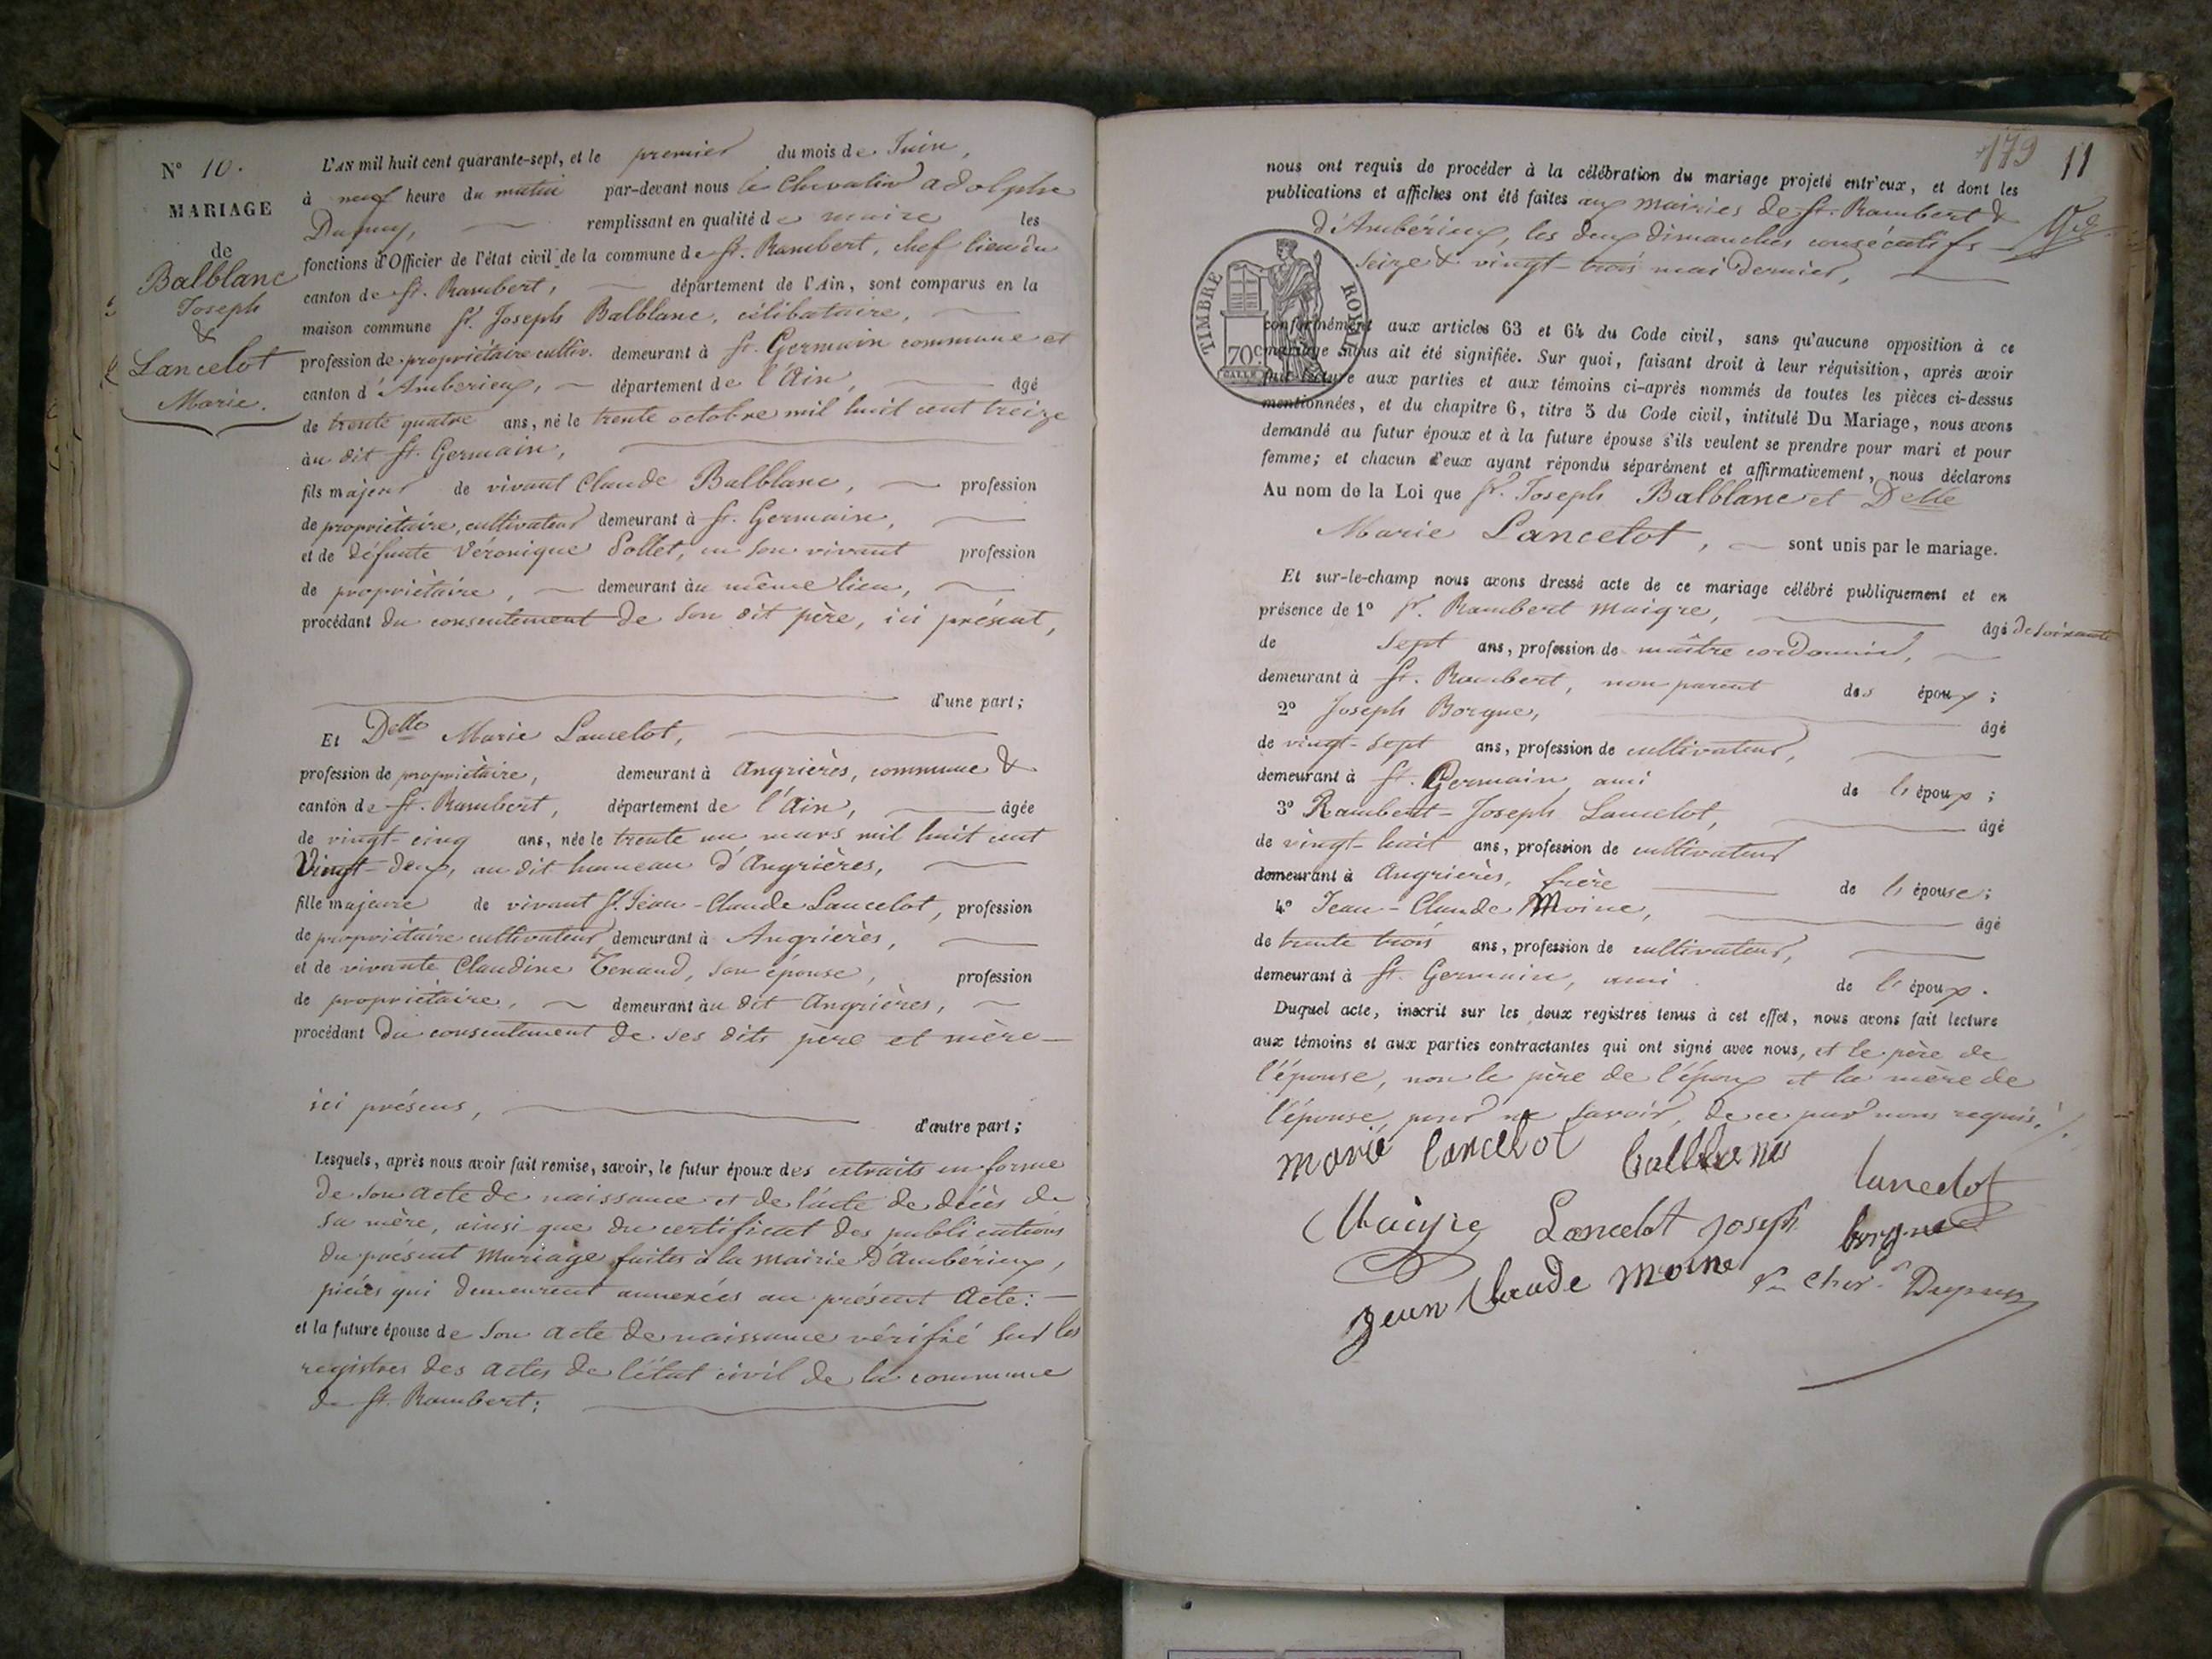 N° 10.
MARIAGE
de
Balblanc
Joseph
&
Lancelot
Marie.
L'AN mil huit cent quarante-sept, et le premier du mois de Juin,
à neuf heure du matin par-devant nous le Chevalier adolphe
Dupuy, remplissant en qualité de maire les
fonctions d'Officier de l'état civil de la commune de St. Rambert, chef lieu du
canton de St. Rambert, département de l'Ain, sont comparus en la
maison commune Sr. Joseph Balblanc, célibataire,
profession de propriétaire cultiv. demeurant à St. Germain commune et
canton d'Amberieux, département de l'Ain, âgé
de trente quatre ans, né le trente octobre mil huit cent treize
au dit St. Germain,
fils majeur de vivant Claude Balblanc, profession
de propriétaire, cultivateur demeurant à St. Germain,
et de défunte Véronique Pollet, en son vivant profession
de propriétaire, demeurant au même lieu,
procédant du consentement de son dit père, ici présent,
d'une part;
Et Delle Marie Lancelot,
profession de propriétaire, demeurant à Angrières, commune &
canton de St. Rambert, département de l'Ain, âgée
de vingt-cinq ans, née le trente un mars mil huit cent
Vingt-deux, au dit hameau d'Angrières,
fille majeure de vivant Sr. Jean-Claude Lancelot, profession
de propriétaire cultivateur demeurant à Angrières,
et de vivante Claudine Tenand, son épouse, profession
de propriétaire, demeurant au dit Angrières,
procédant du consentement de ses dits père et mère
ici présens,
d'autre part;
Lesquels, après nous avoir fait remise, savoir, le futur époux des extraits en forme
de son acte de naissance et de l'acte de décès de
sa mère, ainsi que du certificat des publications
du présent mariage faites à la mairie d'Ambérieux,
pièces qui demeurent annexées au présent acte:
et la future épouse de son acte de naissance vérifié sur les
registres des actes de l'état civil de la commune
de St. Rambert;
179 11
nous ont requis de procéder à la célébration du mariage projeté entr'eux, et dont les
publications et affiches ont été faites aux mairies de St. Rambert &
d'Ambérieux, les deux dimanches consécutifs
seize & vingt-trois mai dernier,
TIMBRE ROYAL
70c
conformément aux articles 63 et 64 du Code civil, sans qu'aucune opposition à ce
mariage nous ait été signifiée. Sur quoi, faisant droit à leur réquisition, après avoir
fait lecture aux parties et aux témoins ci-après nommés de toutes les pièces ci-dessus
mentionnées, et du chapitre 6, titre 5 du Code civil, intitulé Du Mariage, nous avons
demandé au futur époux et à la future épouse s'ils veulent se prendre pour mari et pour
femme; et chacun d'eux ayant répondu séparément et affirmativement, nous déclarons
Au nom de la Loi que Sr. Joseph Balblanc et Delle
Marie Lancelot, sont unis par le mariage.
Et sur-le-champ nous avons dressé acte de ce mariage célébré publiquement et en
présence de 1° Sr. Rambert Maigre, âgé de soixante
de sept ans, profession de maître cordonnier,
demeurant à St. Rambert, non parent des époux;
2° Joseph Borgue, âgé
de vingt-sept ans, profession de cultivateur,
demeurant à St. Germain, ami de l'époux;
3° Rambert-Joseph Lancelot, âgé
de vingt-huit ans, profession de cultivateur
demeurant à Angrières, frère de l'épouse;
4° Jean-Claude Moine, âgé
de trente trois ans, profession de cultivateur,
demeurant à St. Germain, ami de l'époux.
Duquel acte, inscrit sur les deux registres tenus à cet effet, nous avons fait lecture
aux témoins et aux parties contractantes qui ont signé avec nous, et le père de
l'épouse, non le père de l'époux et la mère de
l'épouse, pour ne savoir, de ce par nous requis.
marie lancelot balblanc lancelot
Maigre Lancelot joseph borgue
jean Claude moine Chev. Dupuy